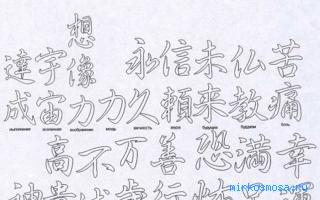 想
達 宇 像 永 信 未 仏 苦
成 宙 力 力 久 頼 来 教 痛
выполнение вселенная воображение мощь вечность вера будущее буддизм боль
高 不 万 善 恐 満 幸
mirkosmosa.ru